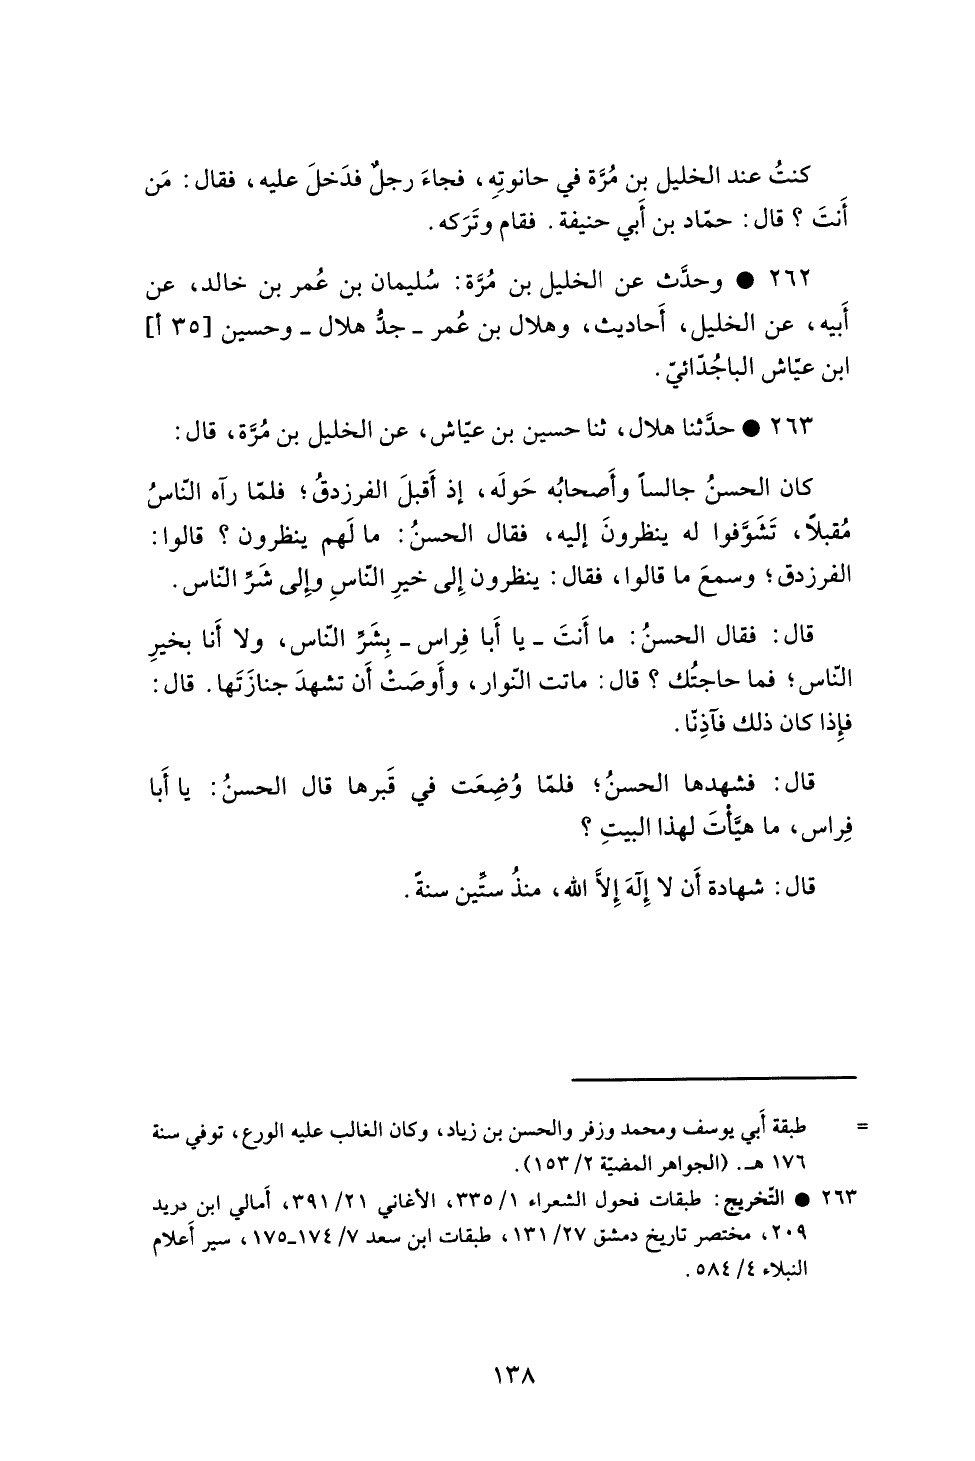 كنتُ عند الخليل بن مُرَّة في حانوتِهِ، فجاءَ رجلٌ فدَخلَ عليه، فقال: مَن
أَنتَ؟ قال: حمّاد بن أَبي حنيفة. فقام وتَرَكه.
٢٦٢ ● وحدَّث عن الخليل بن مُرَّة: سُليمان بن عُمر بن خالد، عن
أَبيه، عن الخليل، أَحاديث، وهلال بن عُمر ـ جدُّ هلال ـ وحسين [٣٥ أ]
ابن عيّاش الباجُدّائيّ.
٢٦٣ ● حدَّثنا هلال، ثنا حسين بن عيّاش، عن الخليل بن مُرَّة، قال:
كان الحسنُ جالساً وأَصحابُه حَولَه، إذ أَقبلَ الفرزدقُ؛ فلمّا رآه النّاسُ
مُقبلاً، تَشَوَّفوا له ينظرونَ إليه، فقال الحسنُ: ما لَهم ينظرون؟ قالوا:
الفرزدق؛ وسمعَ ما قالوا، فقال: ينظرون إِلى خيرِ النّاسِ وإِلى شَرِّ النّاس.
قال: فقال الحسنُ: ما أَنتَ ـ يا أَبا فِراس ـ بِشَرِّ النّاس، ولا أَنا بخيرِ
النّاس؛ فما حاجتُك؟ قال: ماتت النّوار، وأَوصَتْ أَن تشهدَ جنازَتَها. قال:
فإِذا كان ذلك فآذِنّا.
قال: فشهدها الحسنُ؛ فلمّا وُضِعَت في قَبرها قال الحسنُ: يا أَبا
فِراس، ما هيَّأْتَ لهذا البيتِ؟
قال: شهادة أَن لا إِلَهَ إِلاَّ الله، منذُ ستِّين سنةً.
= طبقة أَبي يوسف ومحمد وزفر والحسن بن زياد، وكان الغالب عليه الورع، توفي سنة
١٧٦ هـ. (الجواهر المضيّة ٢/ ١٥٣).
٢٦٣ ● التّخريج: طبقات فحول الشعراء ١/ ٣٣٥، الأغاني ٢١/ ٣٩١، أمالي ابن دريد
٢٠٩، مختصر تاريخ دمشق ٢٧/ ١٣١، طبقات ابن سعد ٧/ ١٧٤ـ١٧٥، سير أَعلام
النبلاء ٤/ ٥٨٤.
١٣٨